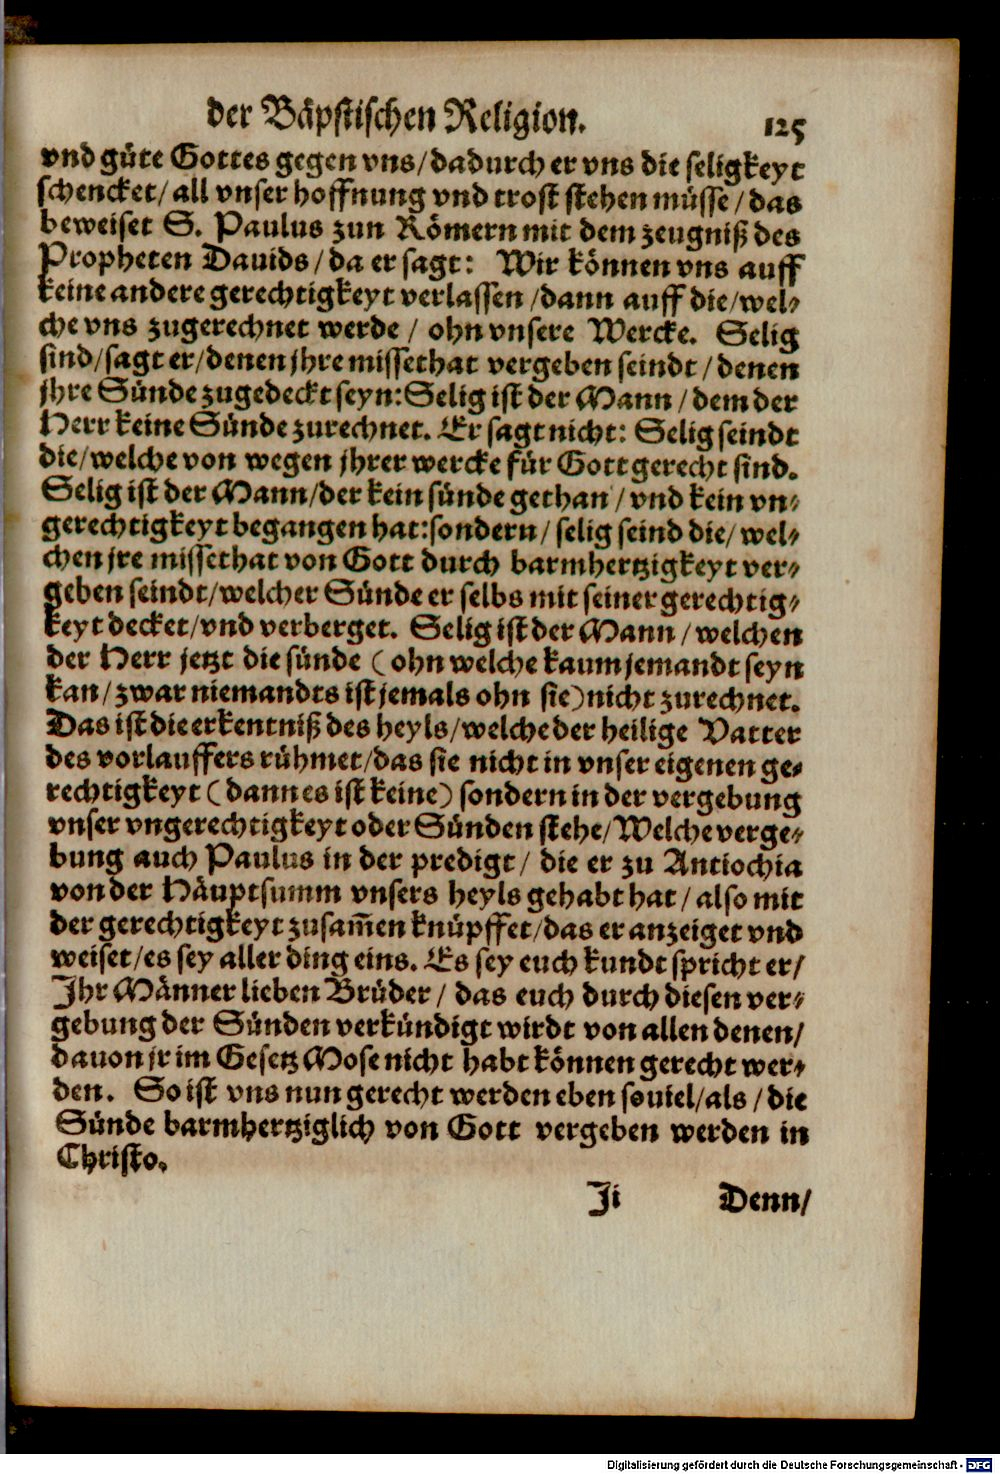 der Bäpstischen Religion. 125
vnd güte Gottes gegen vns/dadurch er vns die seligkeyt
schencket/ all vnser hoffnung vnd trost stehen müsse/das
beweiset S. Paulus zun Römern mit dem zeugniß des
Propheten Dauids/da er sagt: Wir können vns auff
keine andere gerechtigkeyt verlassen/dann auff die/wel-
che vns zugerechnet werde / ohn vnsere Wercke. Selig
sind/sagt er/denen jhre missethat vergeben seindt/denen
jhre Sünde zugedeckt seyn:Selig ist der Mann/dem der
Herr keine Sünde zurechnet. Er sagt nicht: Selig seindt
die/welche von wegen jhrer wercke für Gott gerecht sind.
Selig ist der Mann/der kein sünde gethan / vnd kein vn-
gerechtigkeyt begangen hat:sondern/ selig seind die/wel-
chen jre missethat von Gott durch barmhertzigkeyt ver-
geben seindt/welcher Sünde er selbs mit seiner gerechtig-
keyt decket/vnd verberget. Selig ist der Mann/welchen
der Herr jetzt die sünde (ohn welche kaum jemandt seyn
kan/zwar niemandts ist jemals ohn sie)nicht zurechnet.
Das ist die erkentniß des heyls/welche der heilige Vatter
des vorlauffers rühmet/das sie nicht in vnser eigenen ge-
rechtigkeyt (dann es ist keine) sondern in der vergebung
vnser vngerechtigkeyt oder Sünden stehe/Welche verge-
bung auch Paulus in der predigt/ die er zu Antiochia
von der Häuptsumm vnsers heyls gehabt hat/also mit
der gerechtigkeyt zusam̃en knüpffet/das er anzeiget vnd
weiset/es sey aller ding eins. Es sey euch kundt spricht er/
Jhr Männer lieben Brüder/ das euch durch diesen ver-
gebung der Sünden verkündigt wirdt von allen denen/
dauon jr im Gesetz Mose nicht habt können gerecht wer-
den. So ist vns nun gerecht werden eben souiel/als/die
Sünde barmhertziglich von Gott vergeben werden in
Christo.
Ji Denn/
Digitalisierung gefördert durch die Deutsche Forschungsgemeinschaft - DFG